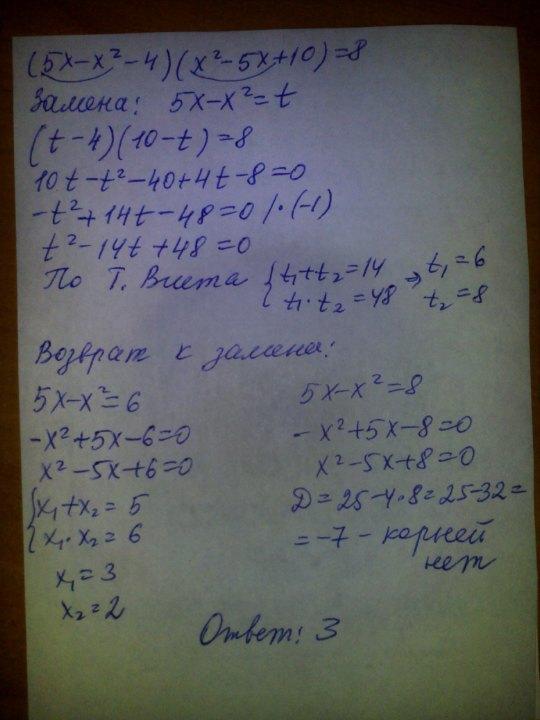 (5x-x²-4)(x²-5x+10)=8
Замена: 5x-x²=t
(t-4)(10-t)=8
10t-t²-40+4t-8=0
-t²+14t-48=0 /·(-1)
t²-14t+48=0
По Т. Виета { t₁+t₂=14 ⇒ t₁=6
t₁·t₂=48 t₂=8
Возврат к замена:
5x-x²=6
-x²+5x-6=0
x²-5x+6=0
{ x₁+x₂=5
x₁·x₂=6
x₁=3
x₂=2
5x-x²=8
-x²+5x-8=0
x²-5x+8=0
D=25-4·8=25-32=
=-7 - корней
нет
Ответ: 3